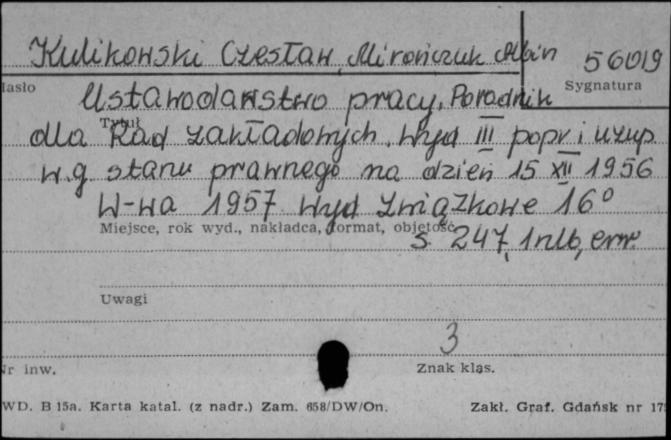 Kulikowski Czesław, Mirończuk Albin 56019
Hasło Sygnatura
Ustawodawstwo pracy. Poradnik
Tytuł
dla Rad zakładowych. Wyd III popr i uzup
w.g stanu prawnego na dzień 15 XII 1956
W-wa 1957 Wyd Związkowe 16°
Miejsce, rok wyd., nakładca, format, objętość
s 247, 1 nlb, err.
Uwagi
3
Nr inw. Znak klas.
WD. B 15a. Karta katal. (z nadr.) Zam. 658/DW/On. Zakł. Graf. Gdańsk nr 17